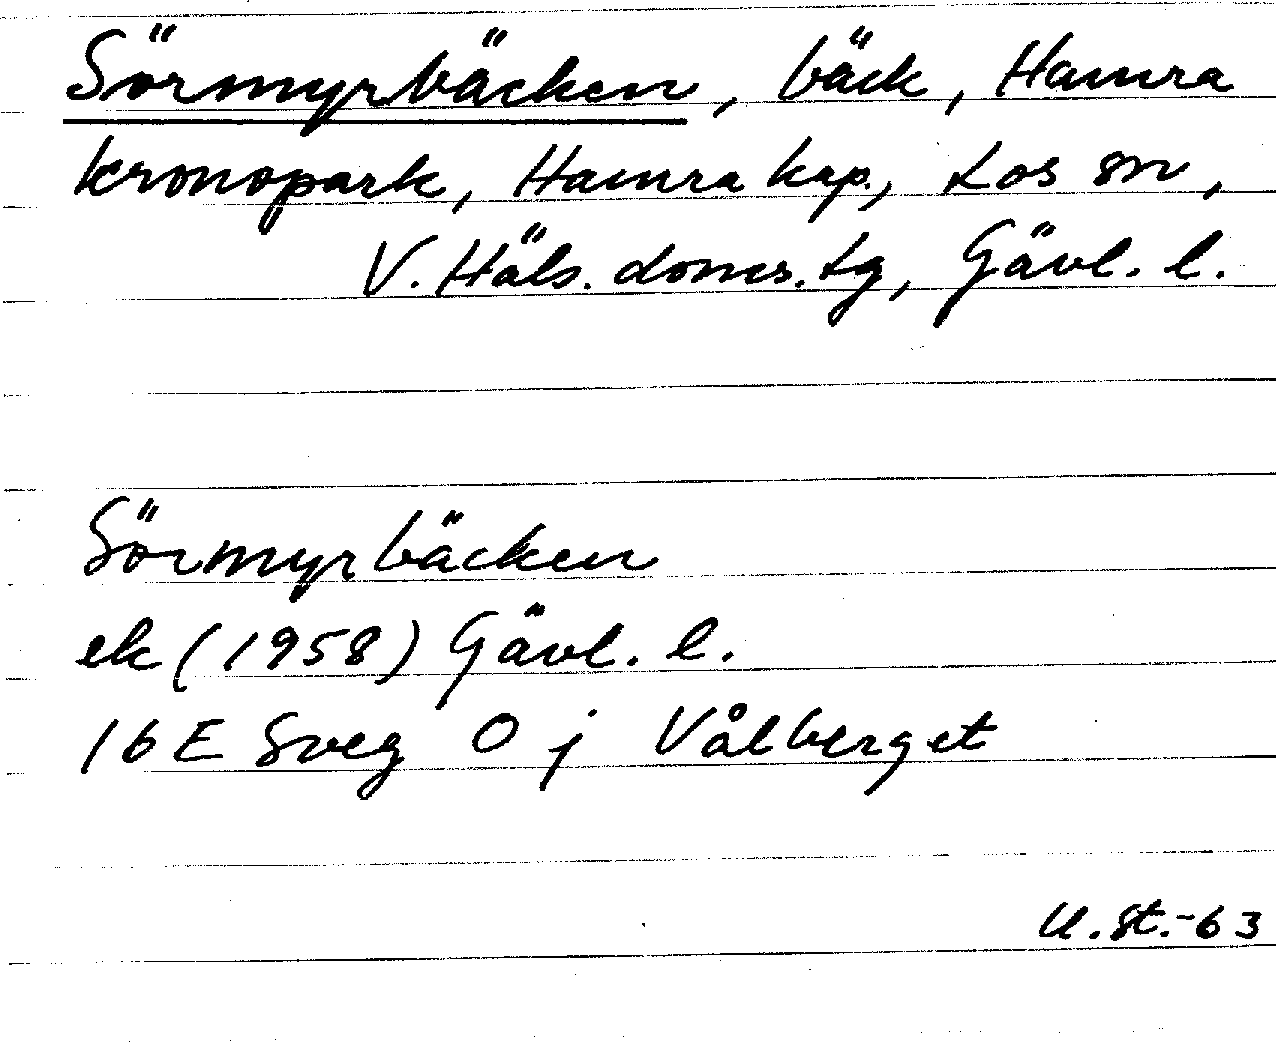 Sörmyrbäcken, bäck, Hamra
kronopark, Hamra kap., Los sn,
V. Häls. doms. tg, Gävl. l.
Sörmyrbäcken
ek (1958) Gävl. l.
16 E Sveg O j Vålberget
U. St. -63